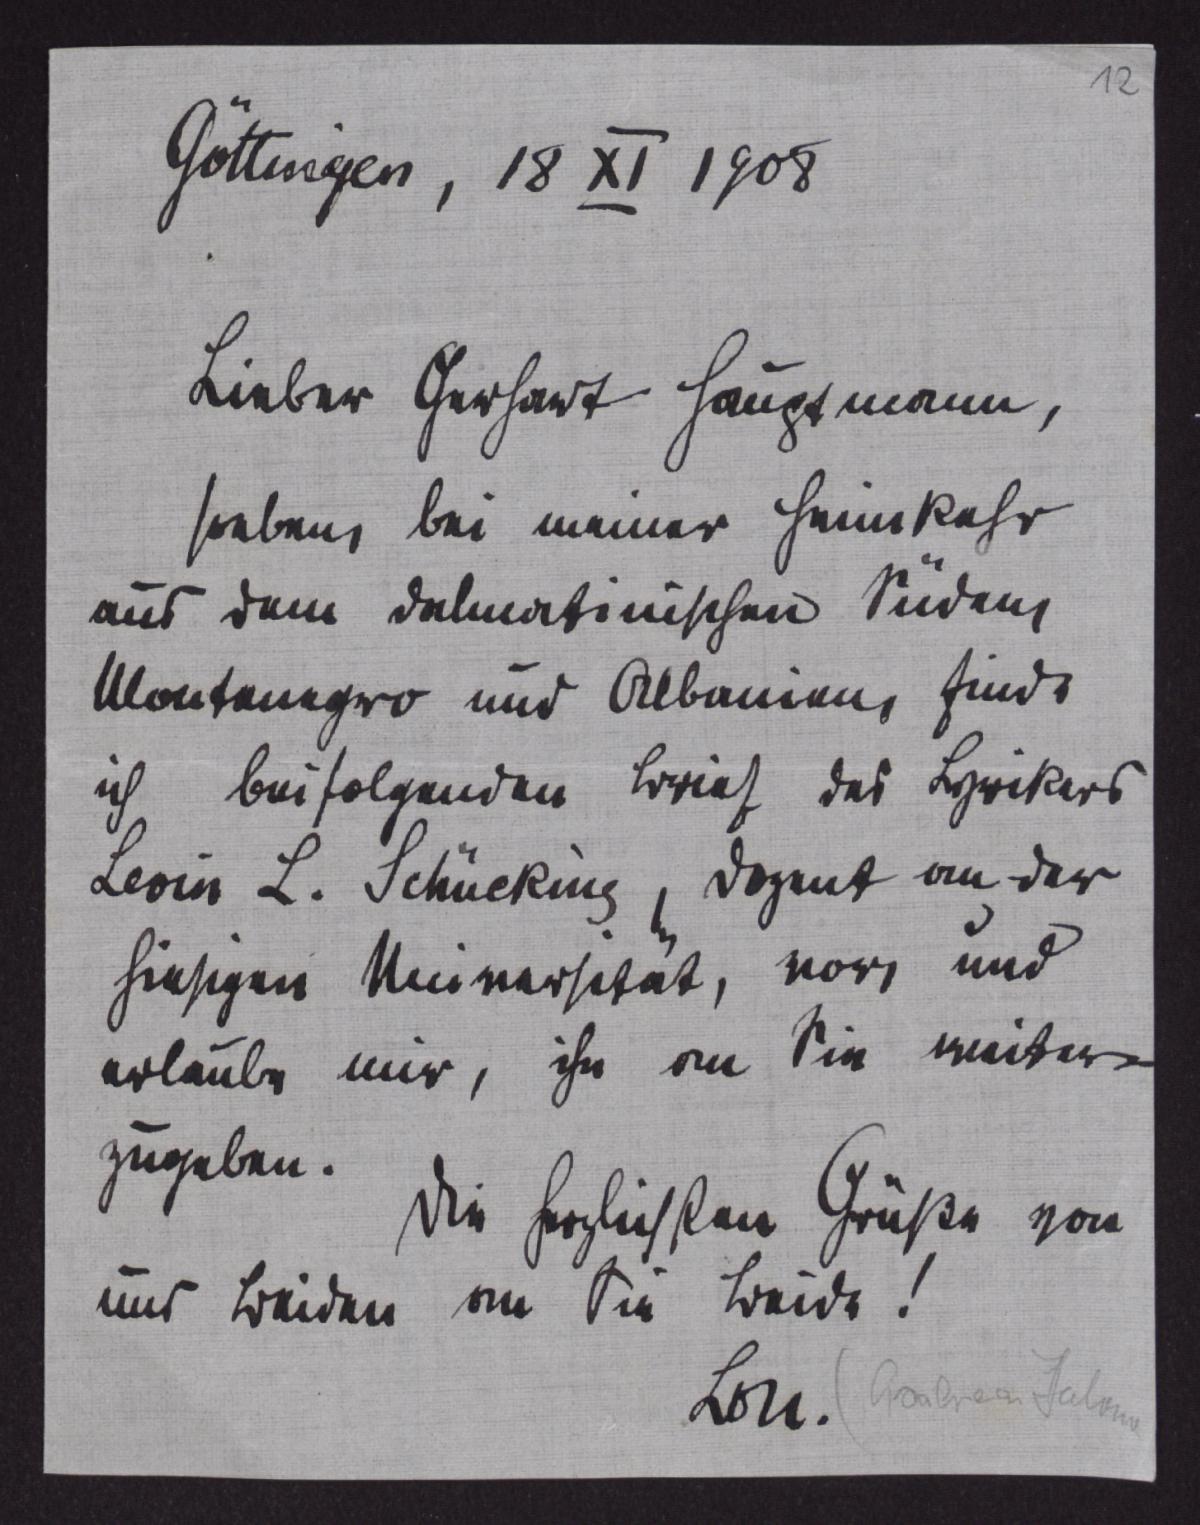 12
Göttingen, 18 XI 1908
Lieber Gerhart Hauptmann,
soeben, bei meiner Heimkehr
aus dem dalmatinischen Süden,
Montenegro und Albanien, finde
ich beifolgenden Brief des Lyrikers
Levin L. Schücking, Dozent an der
hiesigen Universität, vor, und
erlaube mir, ihn an Sie weiter-
zugeben.
Die herzlichsten Grüße von
uns Beiden an Sie Beide!
Lou. (Andreas Salome